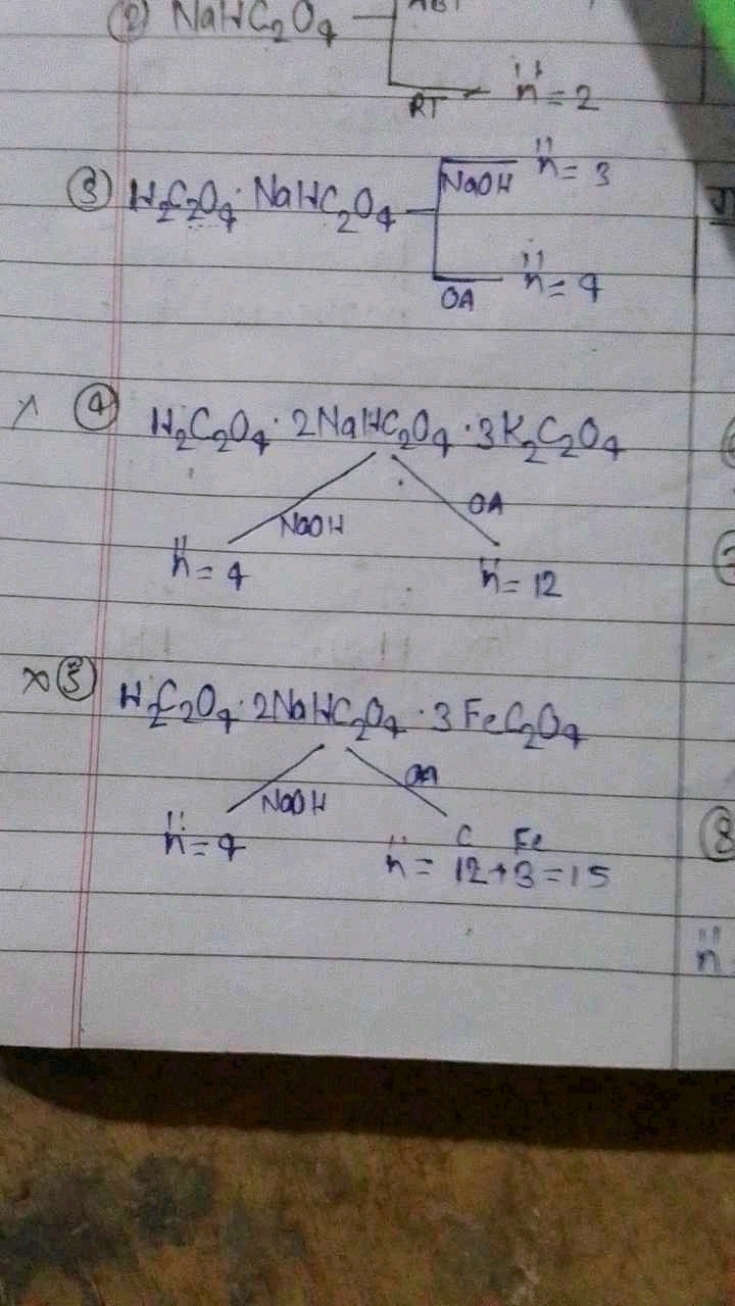 ② NaHC₂O₄
RT n̈ = 2
③ H₂C₂O₄·NaHC₂O₄
NaOH n̈ = 3
OA n̈ = 4
× ④ H₂C₂O₄·2NaHC₂O₄·3K₂C₂O₄
NaOH OA
n̈ = 4 n̈ = 12
× ⑤ H₂C₂O₄·2NaHC₂O₄·3FeC₂O₄
NaOH OA
C Fe
n̈ = 4 n̈ = 12+3=15
⑧
n̈